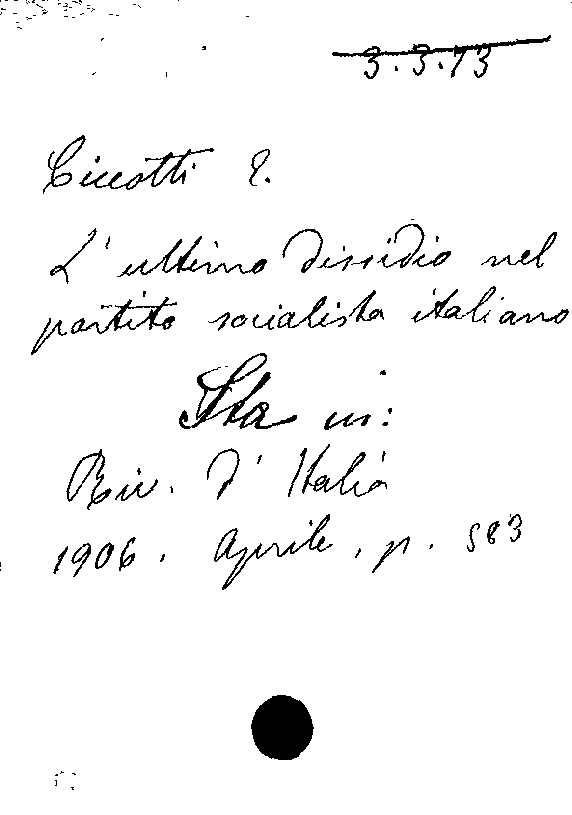 3.3.73
Ciccotti E.
L'ultimo dissidio nel
partito socialista italiano
Sta in:
Riv. d'Italia
1906. Aprile, p. 583